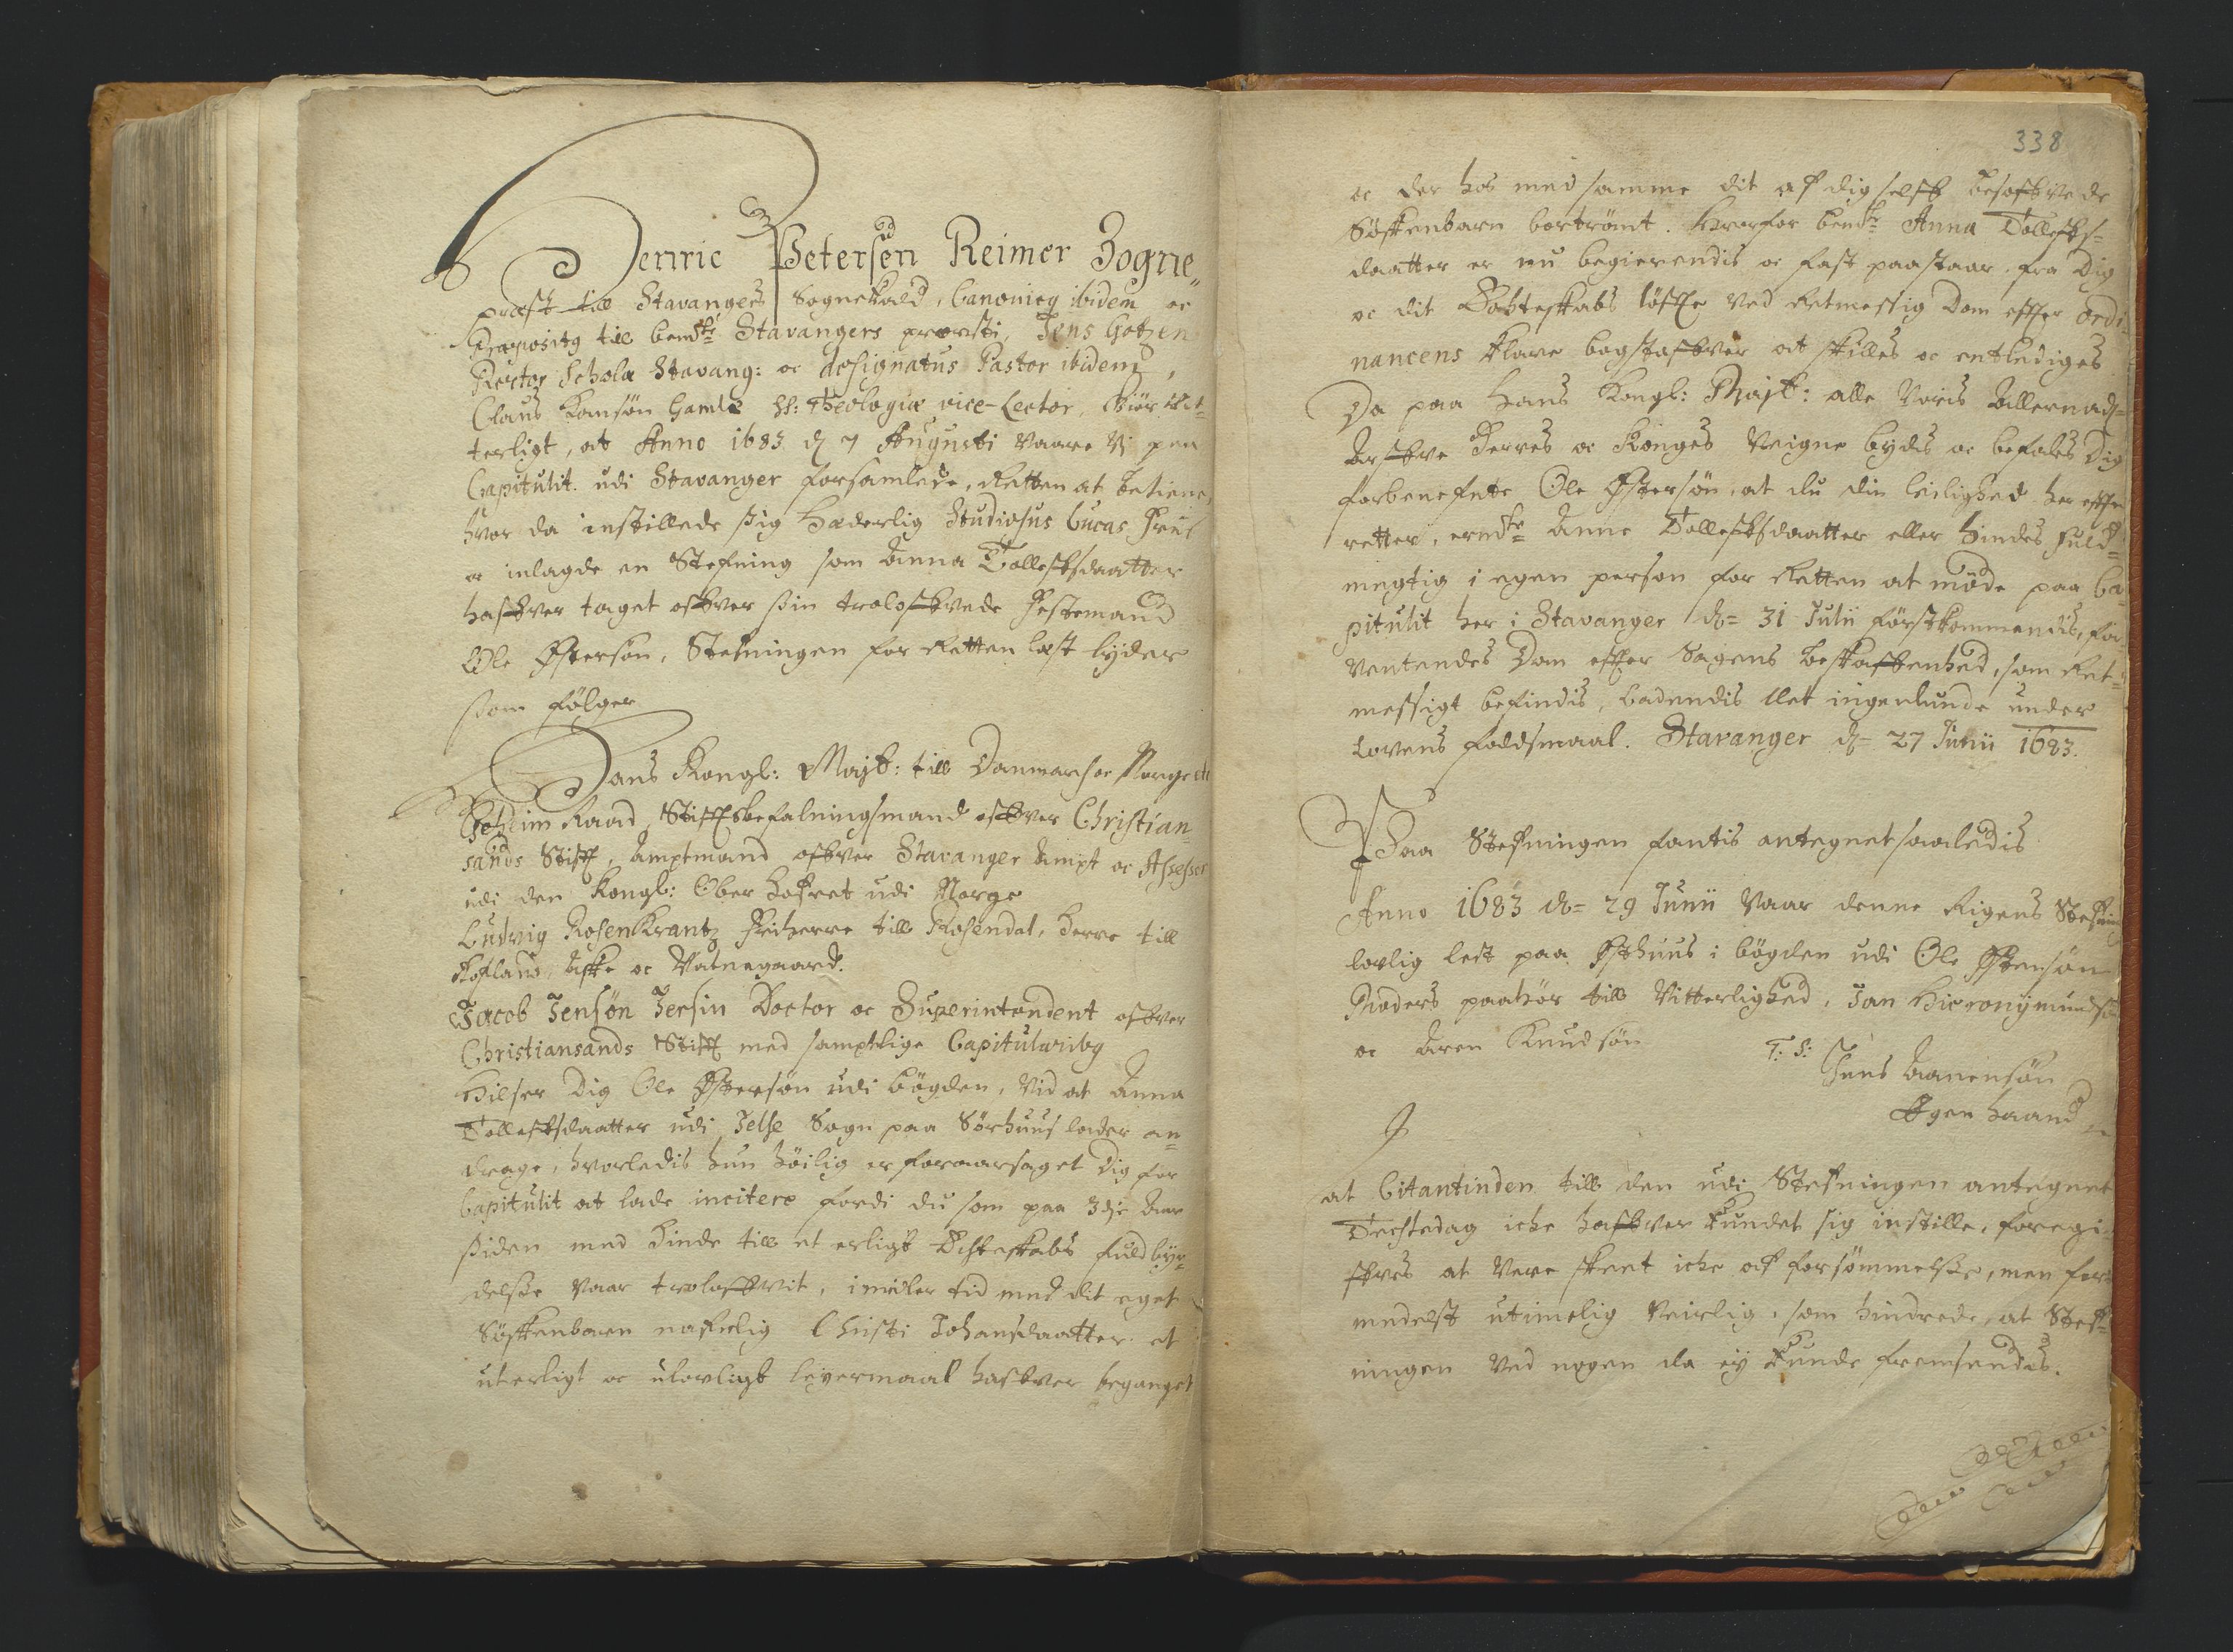 Henric Petersen Reimer Sogne"
præst till Stavangers Sognekald, Canonicg ibidem oc
Præpositg till bemdte Stavangers provsti, Jens Gotzen
Rector Scholæ Stavang: oc designatus Pastor ibidem,
Claus Hansøn Gamle SS: Theologiæ vice-Lector, Giør vit-
terligt, at Anno 1683 d 7 Augusti vaare vj paa
Capitulit udi Stavanger forsamlede, Retten at betiene,
hvor da instillede sig Hæderlig Studiosus Lucas
oc inlagde en Stefning som Anna Tollefsdaatter
hafver taget ofver sin trolofvede Festemand
Ole Østersøn, Stefningen for Retten læst lyder
som følger
Hans Kongl: Majt: till Danmarch oc Norge etc
Geheim Raad, Stiftsbefalningsmand ofver Christian-
sands Stift, Amptmand ofver Stavanger Ampt oc Assessor
udi den Kongl: Ober Hofret udi Norge
Ludvig Rosenkrantz friherre till Rosendal, Herre till
Hofland, Aske oc Vatnegaard.
Jacob Jensøn Jersin Doctor oc Superintendent ofver
Christiansands Stift med samptlige Capitularibg
Hilser Dig Ole Østersøn udi Bøgden, Vid at Anna
Tollefsdaatter udi Jelse Sogn paa Sørhuus lader an-
drage, hvorledis hun høilig er foraarsaget Dig for
Capitulit at lade incitere fordi du som paa 3die Aar
siden med hinde till et erligt Echteskabs fuldbyr-
delse vaar trolofvit, imidler tid med dit eget
Søskenbarn nafnlig Christi Johansdaatter et
uterligt oc ulovligt leyermaal hafver beganget
338
oc der hos med samme dit af dig self besofvede
Søskenbarn bortrømt. Hvorfor bemte Anna Tollefs-
daatter er nu begierendis oc fast paastaar, fra Dig
oc dit Echteskabs løfte ved Retmessig Dom efter Ordi-
nancens klare bogstafver at skilles oc entlediges
Da paa Hans Kongl: Majt: alle Voris Allernad-
Arfve Herres oc Konges Veigne bydis oc befales Dig
forbenefnte Ole Østersøn, at du din leilighed her efter
retter, ermte Anne Tollefsdaatter eller hindes fuld-
megtig i egen person for Retten at møde paa Ca-
pitulit her i Stavanger d= 31 Julii førstkommendis, for
ventendes Dom efter Sagens beskaffenhed, som Ret-
messigt befindis, ladendis det ingenlunde under
Lovens faldsmaal. Stavanger d= 27 Junii 1683.
Paa Stefningen fantis antegnet saaledis
Anno 1683 d= 29 Junii vaar denne Rigens Stefning
lovlig lest paa Østhuus i bøgden udi Ole Østersøn
Moders paahør till Vitterlighed, Jan Hieronymundsøn
oc Aren Knudsøn
T: S: Jens Aanensøn
Egen haand
at Citantinden till den udi Stefningen antegnet
Techtedag iche hafver kundet sig instille, foregi-
fves at vere skeet iche af forsømmelse, men for
medelst utimelig Veirlig, som hindrede, at Stef-
ningen ved nogen da ey kunde fremsendis.